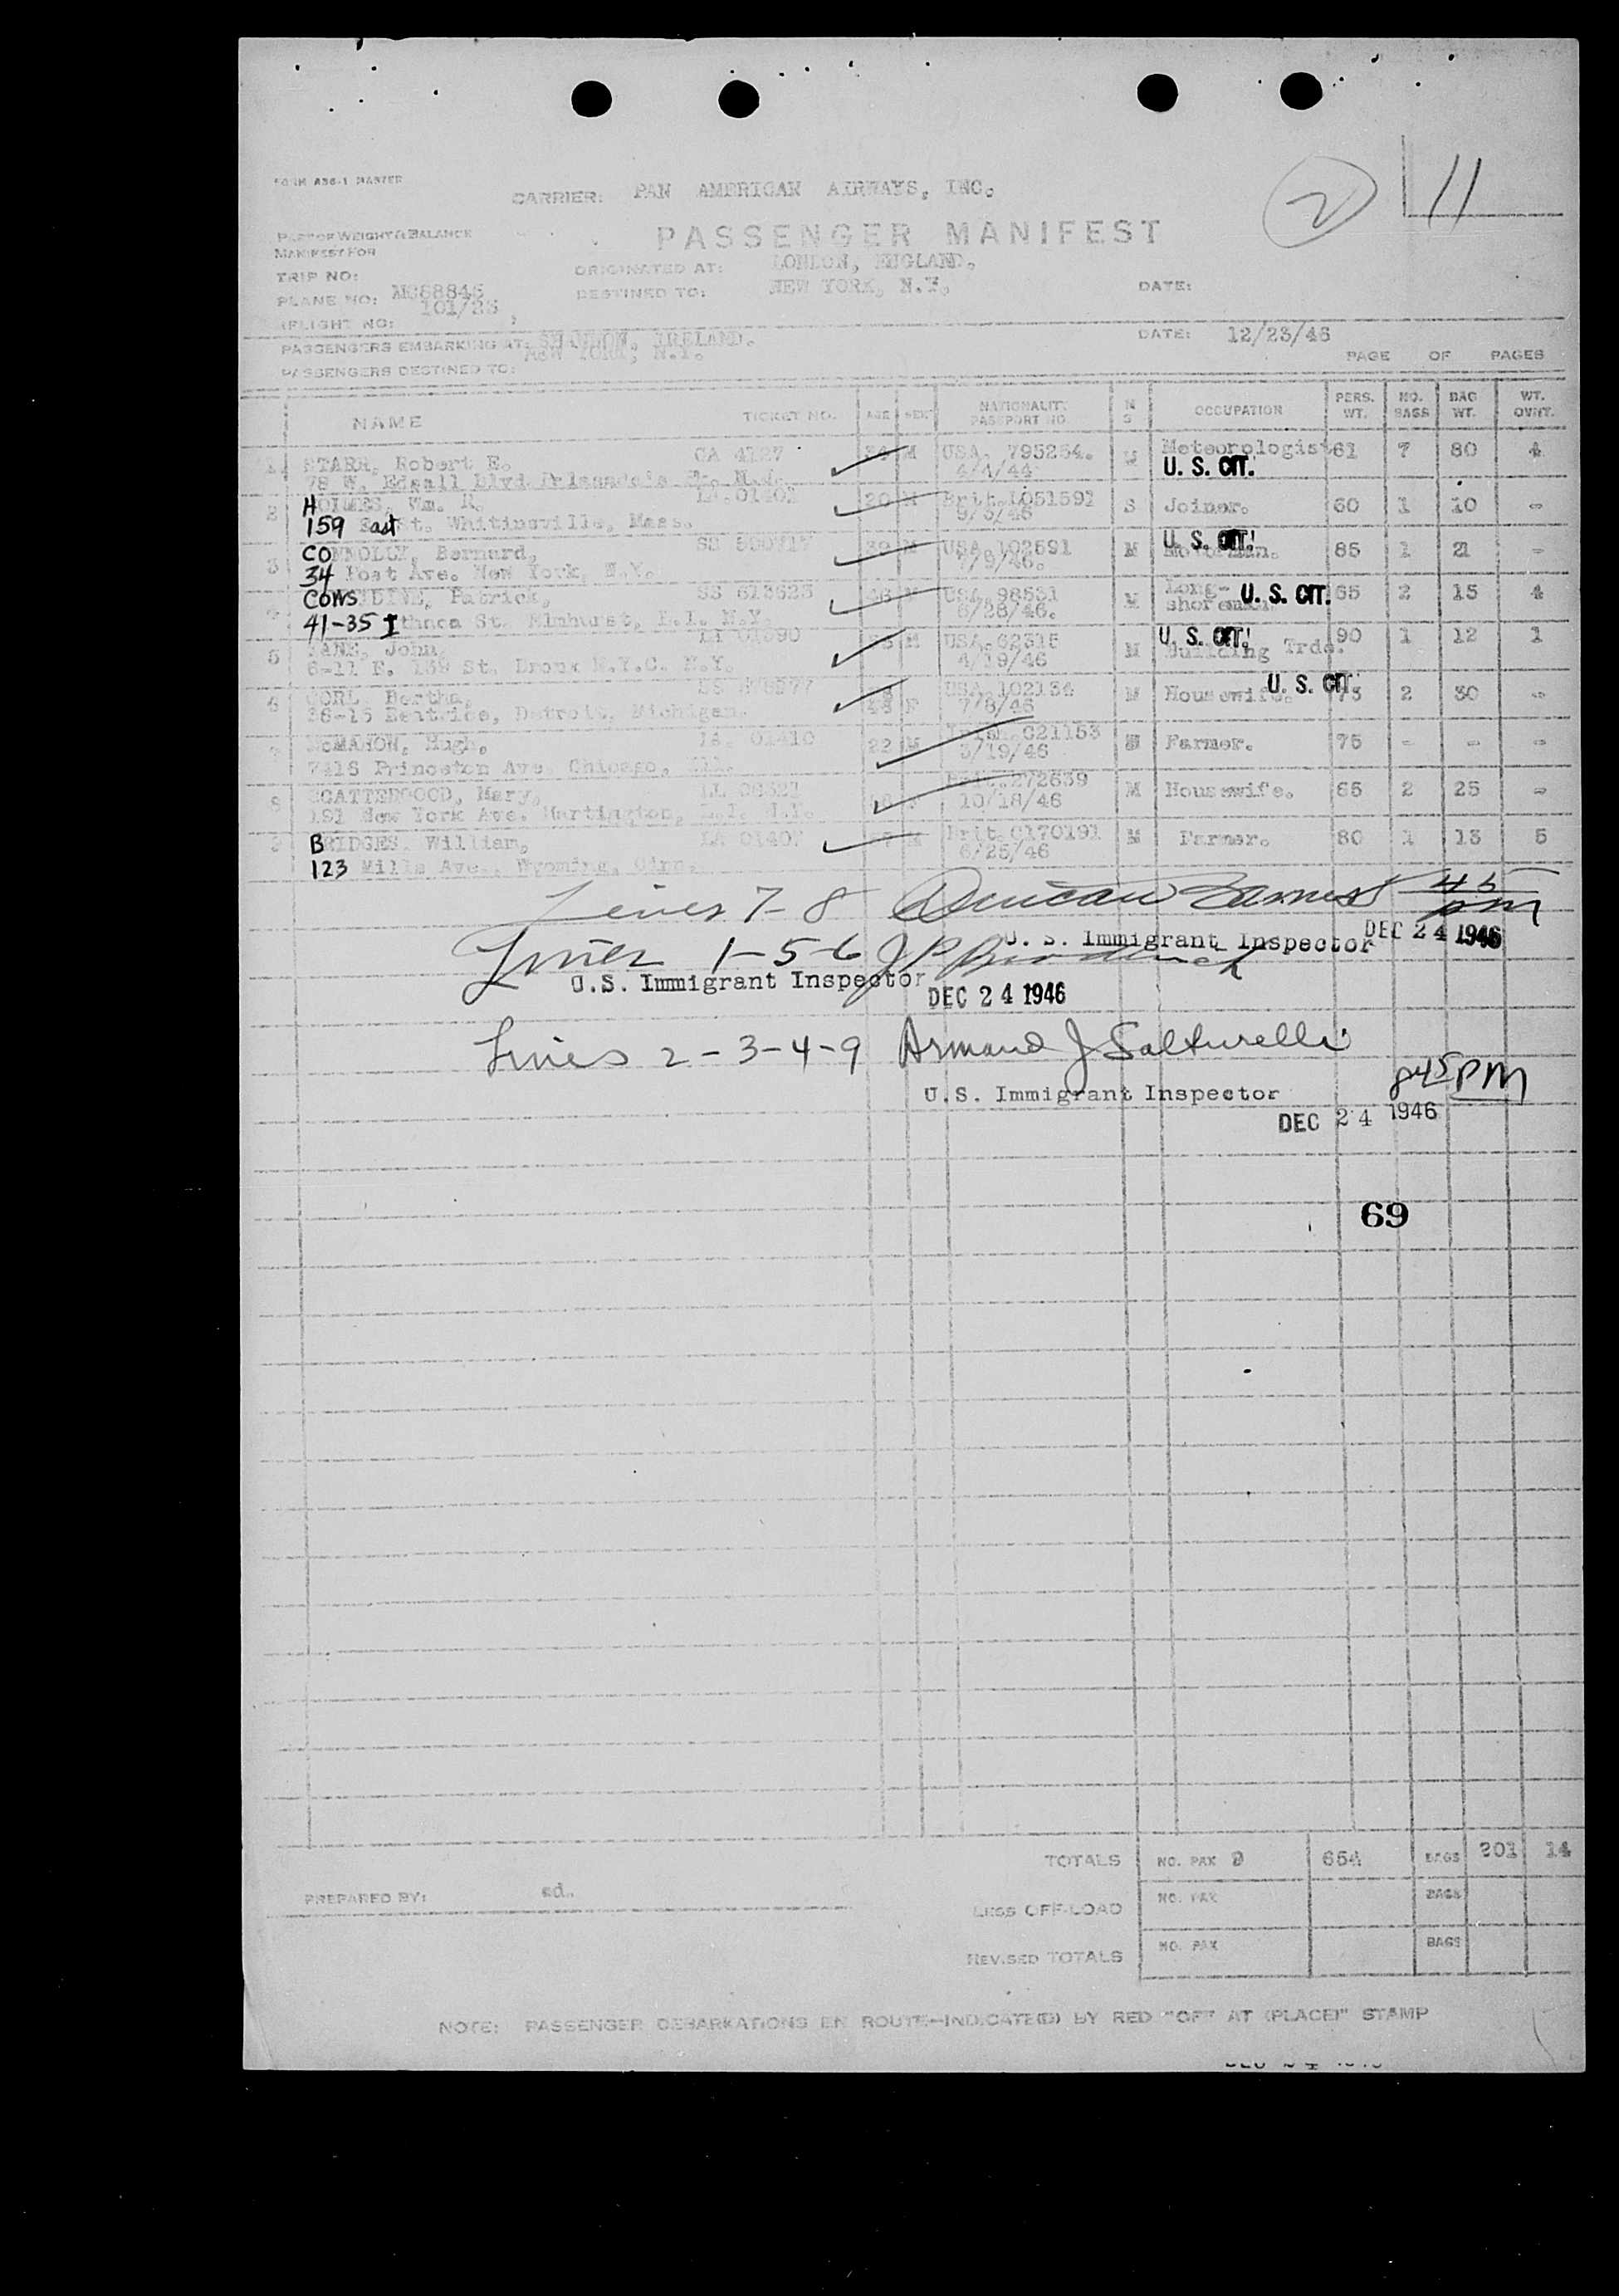 FORM A36-1 MASTER
CARRIER: PAN AMERICAN AIRWAYS, INC.
2 11
PART OF WEIGHT & BALANCE
MANIFEST FOR
PASSENGER MANIFEST
TRIP NO:
ORIGINATED AT: LONDON, ENGLAND.
PLANE NO: NC88845
DESTINED TO: NEW YORK, N.Y.
DATE:
(FLIGHT NO: 101/23
PASSENGERS EMBARKING AT: SHANNON, IRELAND.
DATE: 12/23/46
PASSENGERS DESTINED TO: NEW YORK, N.Y.
PAGE OF PAGES
NAME TICKET NO. AGE SEX NATIONALITY PASSPORT NO. M S OCCUPATION PERS. WT. NO. BAGS BAG WT. WT. OVWT.
1 STARR, Robert E. CA 4127 M USA. 795264. Meteorologist 61 7 80 4
78 W. Edsall Blvd 4/4/44 U. S. CIT.
2 HOLMES, Wm. R. LA.01401 20 M Brit.L051591 S Joiner. 60 1 10 -
159 East St. Whitinsville, Mass. 9/5/46
3 CONNOLLY, Bernard, SS 39 M USA 102591 M U. S. CIT. Motorman. 85 1 21 -
34 Post Ave. New York, N.Y. 7/9/46.
4 CONSIDINE, Patrick, SS 613623 46 M USA 98531 M Long- shoreman U. S. CIT. 65 2 15 4
41-35 Ithaca St. Elmhurst, L.I. N.Y. 6/28/46.
5 John, M USA.62315 M U. S. CIT. Building Trde. 90 1 12 1
6-11 E. 139 St. Bronx N.Y.C. N.Y. 4/19/46
6 Bertha, SS 48 F USA 102134 M Housewife. U. S. CIT. 73 2 30 -
38-15 Beatrice, Detroit, Michigan. 7/8/46
7 McMAHON, Hugh, LA. 01410 22 M Irish C21153 S Farmer. 75 - - -
7416 Princeton Ave. Chicago, Ill. 3/19/46
8 SCATTERGOOD, Mary, Brit.272639 M Housewife. 65 2 25 -
191 New York Ave. Huntington, L.I. N.Y. 10/18/46
9 BRIDGES, William, LA 01407 M Brit.C170191 M Farmer. 80 1 13 5
123 Mills Ave., Wyoming, Cinn. 6/25/46
Lines 7-8 Duncan 45 pm
U. S. Immigrant Inspector DEC 24 1946
Lines 1-5-6 J P Broderick
U.S. Immigrant Inspector DEC 24 1946
Lines 2-3-4-9 Armand J Salturelli
845 PM
U.S. Immigrant Inspector
DEC 24 1946
69
TOTALS NO. PAX 9 654 BAGS 201 14
PREPARED BY: ed.
LESS OFF-LOAD NO. PAX BAGS
REVISED TOTALS NO. PAX BAGS
NOTE: PASSENGER DEBARKATIONS EN ROUTE—INDICATE(D) BY RED "OFF AT (PLACE)" STAMP